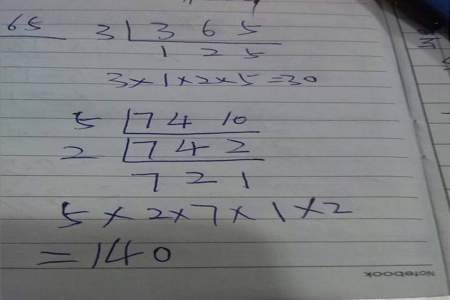 65
3 3 6 5
1 2 5
3×1×2×5=30
5 7 4 10
2 7 4 2
7 2 1
5×2×7×1×2
=140
Notebook